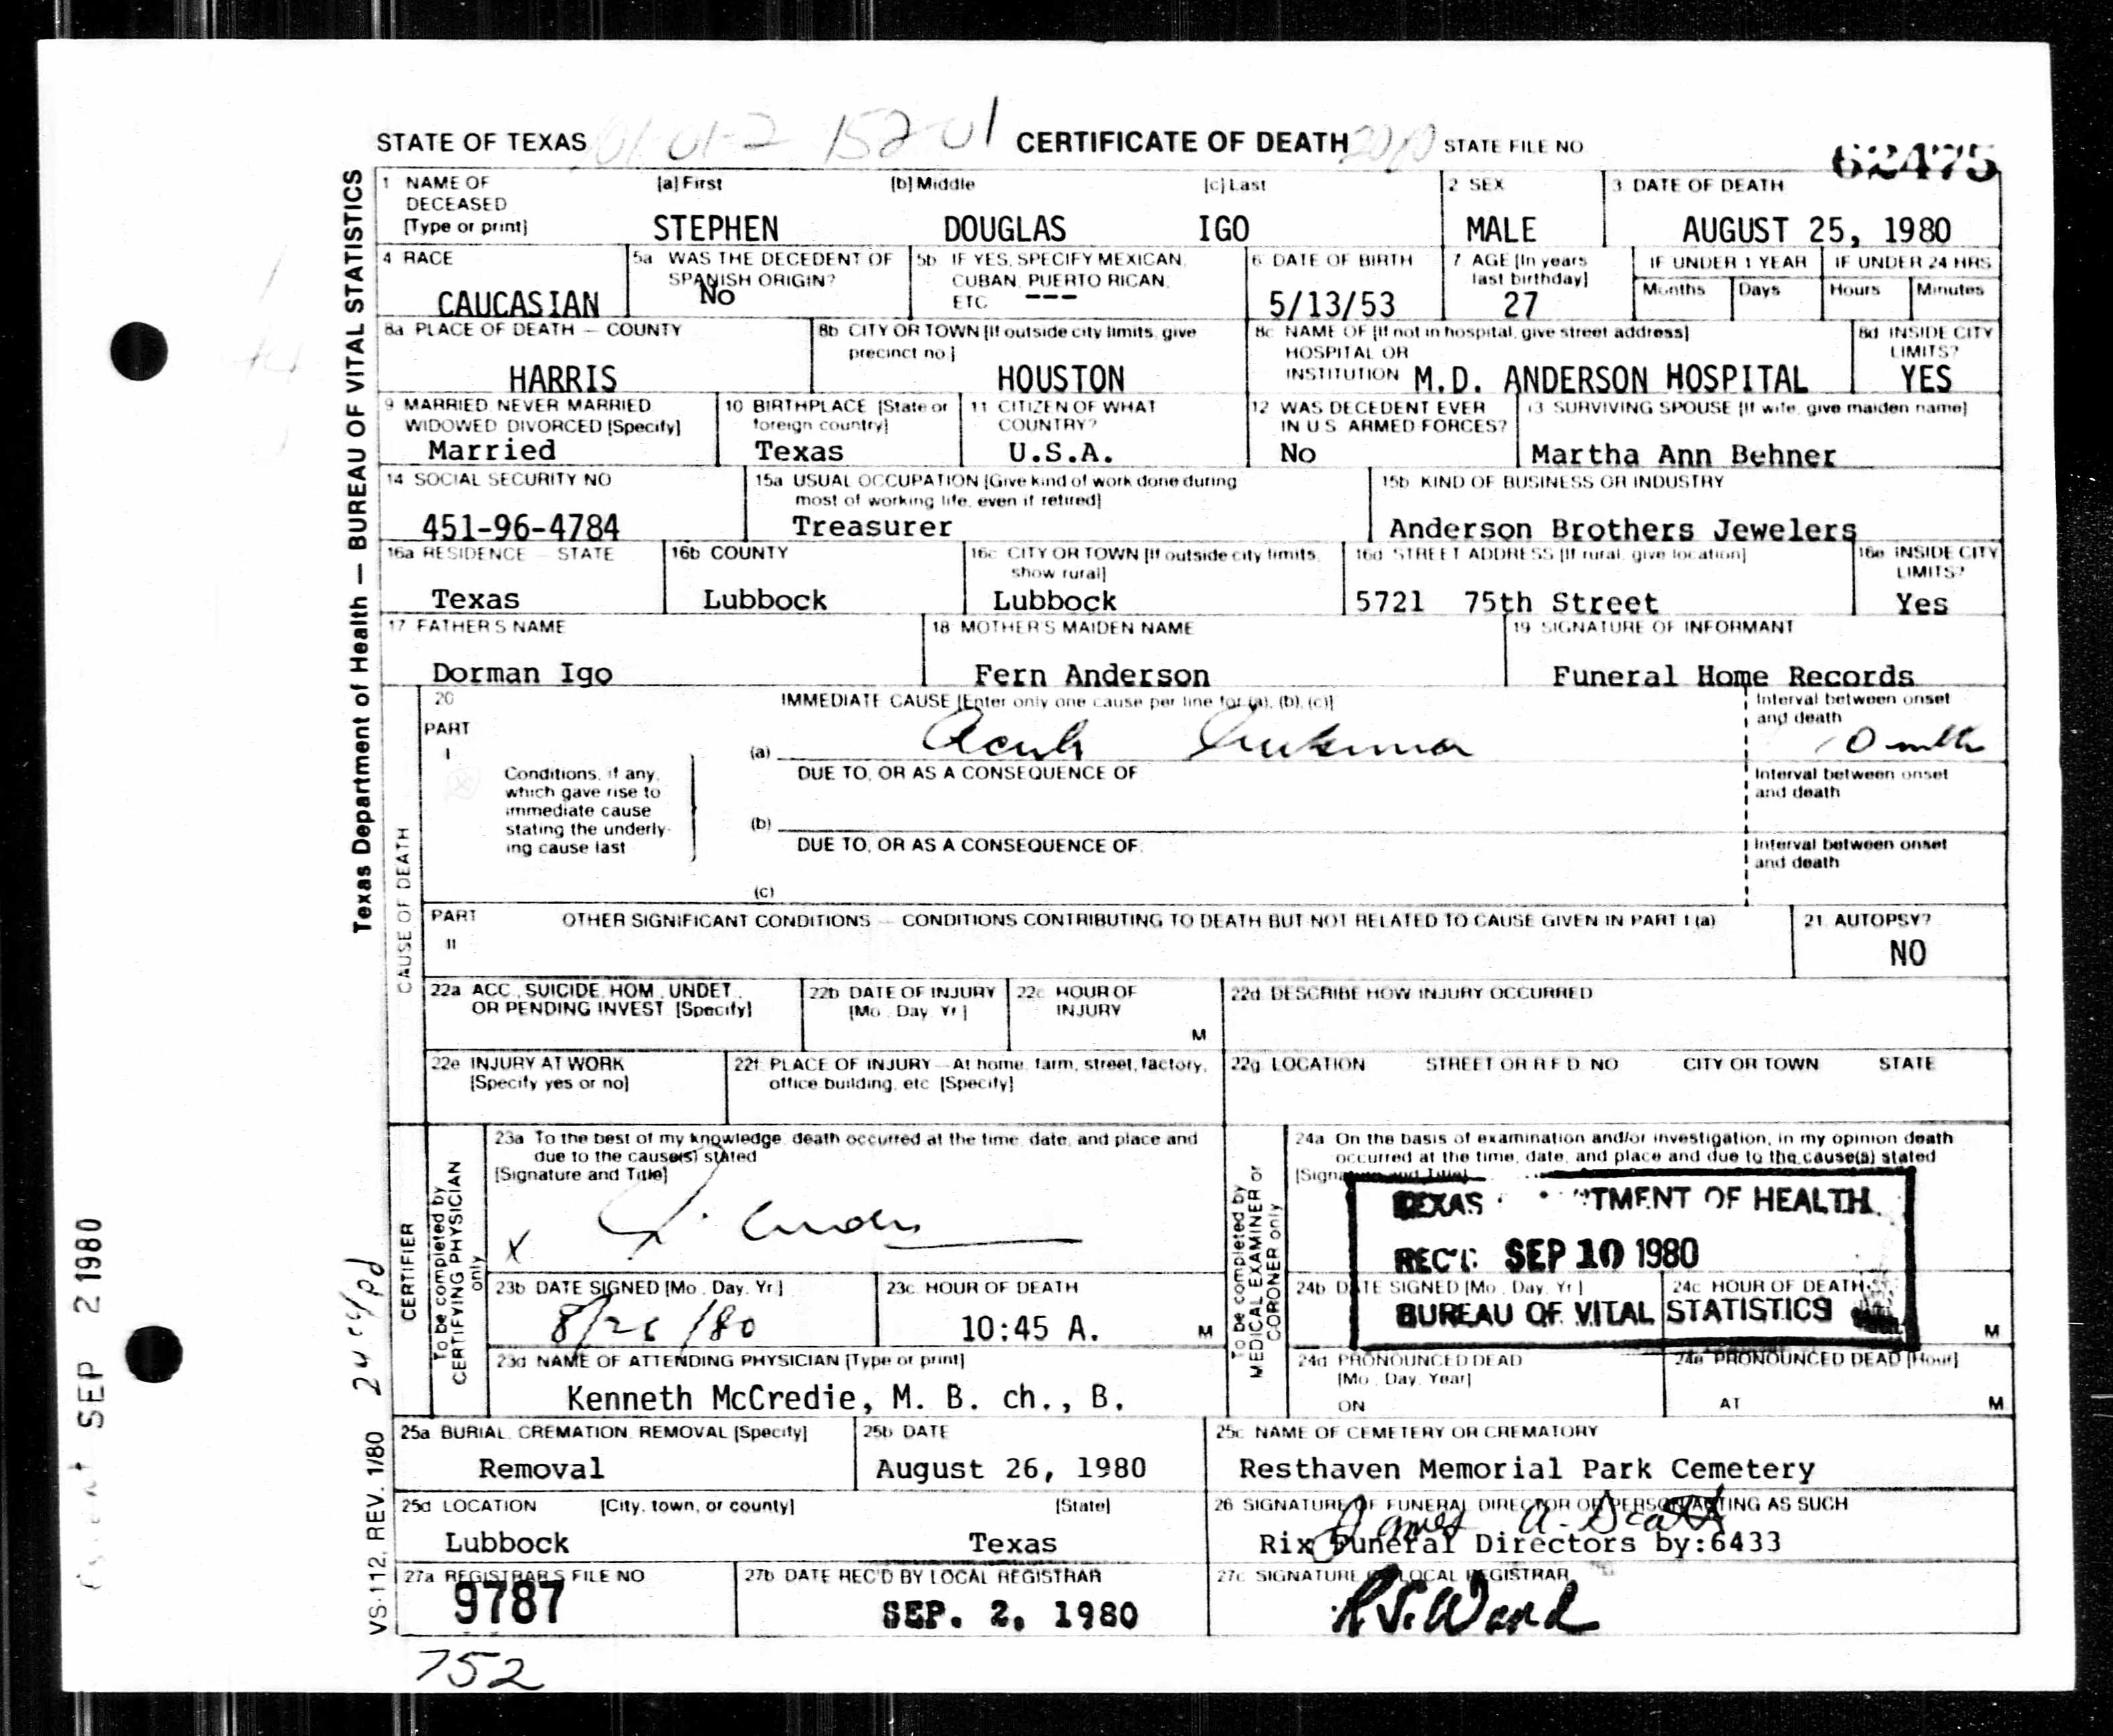 STATE OF TEXAS CERTIFICATE OF DEATH STATE FILE NO 62475
Texas Department of Health — BUREAU OF VITAL STATISTICS
1 NAME OF DECEASED [Type or print] [a] First [b] Middle [c] Last 2 SEX 3 DATE OF DEATH
STEPHEN DOUGLAS IGO MALE AUGUST 25, 1980
4 RACE 5a WAS THE DECEDENT OF SPANISH ORIGIN? 5b IF YES, SPECIFY MEXICAN, CUBAN, PUERTO RICAN, ETC 6 DATE OF BIRTH 7 AGE [In years last birthday] IF UNDER 1 YEAR IF UNDER 24 HRS
Months Days Hours Minutes
CAUCASIAN No --- 5/13/53 27
8a PLACE OF DEATH — COUNTY 8b CITY OR TOWN [If outside city limits, give precinct no.] 8c NAME OF [If not in hospital, give street address] HOSPITAL OR INSTITUTION 8d INSIDE CITY LIMITS?
HARRIS HOUSTON M.D. ANDERSON HOSPITAL YES
9 MARRIED, NEVER MARRIED, WIDOWED, DIVORCED [Specify] 10 BIRTHPLACE [State or foreign country] 11 CITIZEN OF WHAT COUNTRY? 12 WAS DECEDENT EVER IN U.S. ARMED FORCES? 13 SURVIVING SPOUSE [If wife, give maiden name]
Married Texas U.S.A. No Martha Ann Behner
14 SOCIAL SECURITY NO 15a USUAL OCCUPATION [Give kind of work done during most of working life, even if retired] 15b KIND OF BUSINESS OR INDUSTRY
451-96-4784 Treasurer Anderson Brothers Jewelers
16a RESIDENCE — STATE 16b COUNTY 16c CITY OR TOWN [If outside city limits, show rural] 16d STREET ADDRESS [If rural, give location] 16e INSIDE CITY LIMITS?
Texas Lubbock Lubbock 5721 75th Street Yes
17 FATHER'S NAME 18 MOTHER'S MAIDEN NAME 19 SIGNATURE OF INFORMANT
Dorman Igo Fern Anderson Funeral Home Records
CAUSE OF DEATH
20 IMMEDIATE CAUSE [Enter only one cause per line for (a), (b), (c)] Interval between onset and death
PART I
(a) Acute Leukemia
Conditions, if any, which gave rise to immediate cause stating the underlying cause last
DUE TO, OR AS A CONSEQUENCE OF Interval between onset and death
(b)
DUE TO, OR AS A CONSEQUENCE OF: Interval between onset and death
(c)
PART II OTHER SIGNIFICANT CONDITIONS — CONDITIONS CONTRIBUTING TO DEATH BUT NOT RELATED TO CAUSE GIVEN IN PART I (a) 21 AUTOPSY?
NO
22a ACC., SUICIDE, HOM., UNDET., OR PENDING INVEST. [Specify] 22b DATE OF INJURY [Mo., Day, Yr.] 22c HOUR OF INJURY M 22d DESCRIBE HOW INJURY OCCURRED
22e INJURY AT WORK [Specify yes or no] 22f PLACE OF INJURY — At home, farm, street, factory, office building, etc [Specify] 22g LOCATION STREET OR R.F.D. NO CITY OR TOWN STATE
CERTIFIER
To be completed by CERTIFYING PHYSICIAN only
23a To the best of my knowledge, death occurred at the time, date, and place and due to the cause(s) stated
[Signature and Title]
X
To be completed by MEDICAL EXAMINER or CORONER only
24a On the basis of examination and/or investigation, in my opinion death occurred at the time, date, and place and due to the cause(s) stated
TEXAS TMENT OF HEALTH
REC'D SEP 10 1980
BUREAU OF VITAL STATISTICS
23b DATE SIGNED [Mo., Day, Yr.] 23c HOUR OF DEATH 24b DATE SIGNED [Mo., Day, Yr.] 24c HOUR OF DEATH
8/26/80 10:45 A. M M
23d NAME OF ATTENDING PHYSICIAN [Type or print] 24d PRONOUNCED DEAD [Mo., Day, Year] 24e PRONOUNCED DEAD [Hour]
Kenneth McCredie, M. B. ch., B. ON AT M
25a BURIAL, CREMATION, REMOVAL [Specify] 25b DATE 25c NAME OF CEMETERY OR CREMATORY
Removal August 26, 1980 Resthaven Memorial Park Cemetery
25d LOCATION [City, town, or county] [State] 26 SIGNATURE OF FUNERAL DIRECTOR OR PERSON ACTING AS SUCH
James A. Scott
Lubbock Texas Rix Funeral Directors by:6433
27a REGISTRAR'S FILE NO 27b DATE REC'D BY LOCAL REGISTRAR 27c SIGNATURE OF LOCAL REGISTRAR
9787 SEP. 2, 1980 R.S. Ward
VS-112, REV. 1/80
752
SEP 2 1980